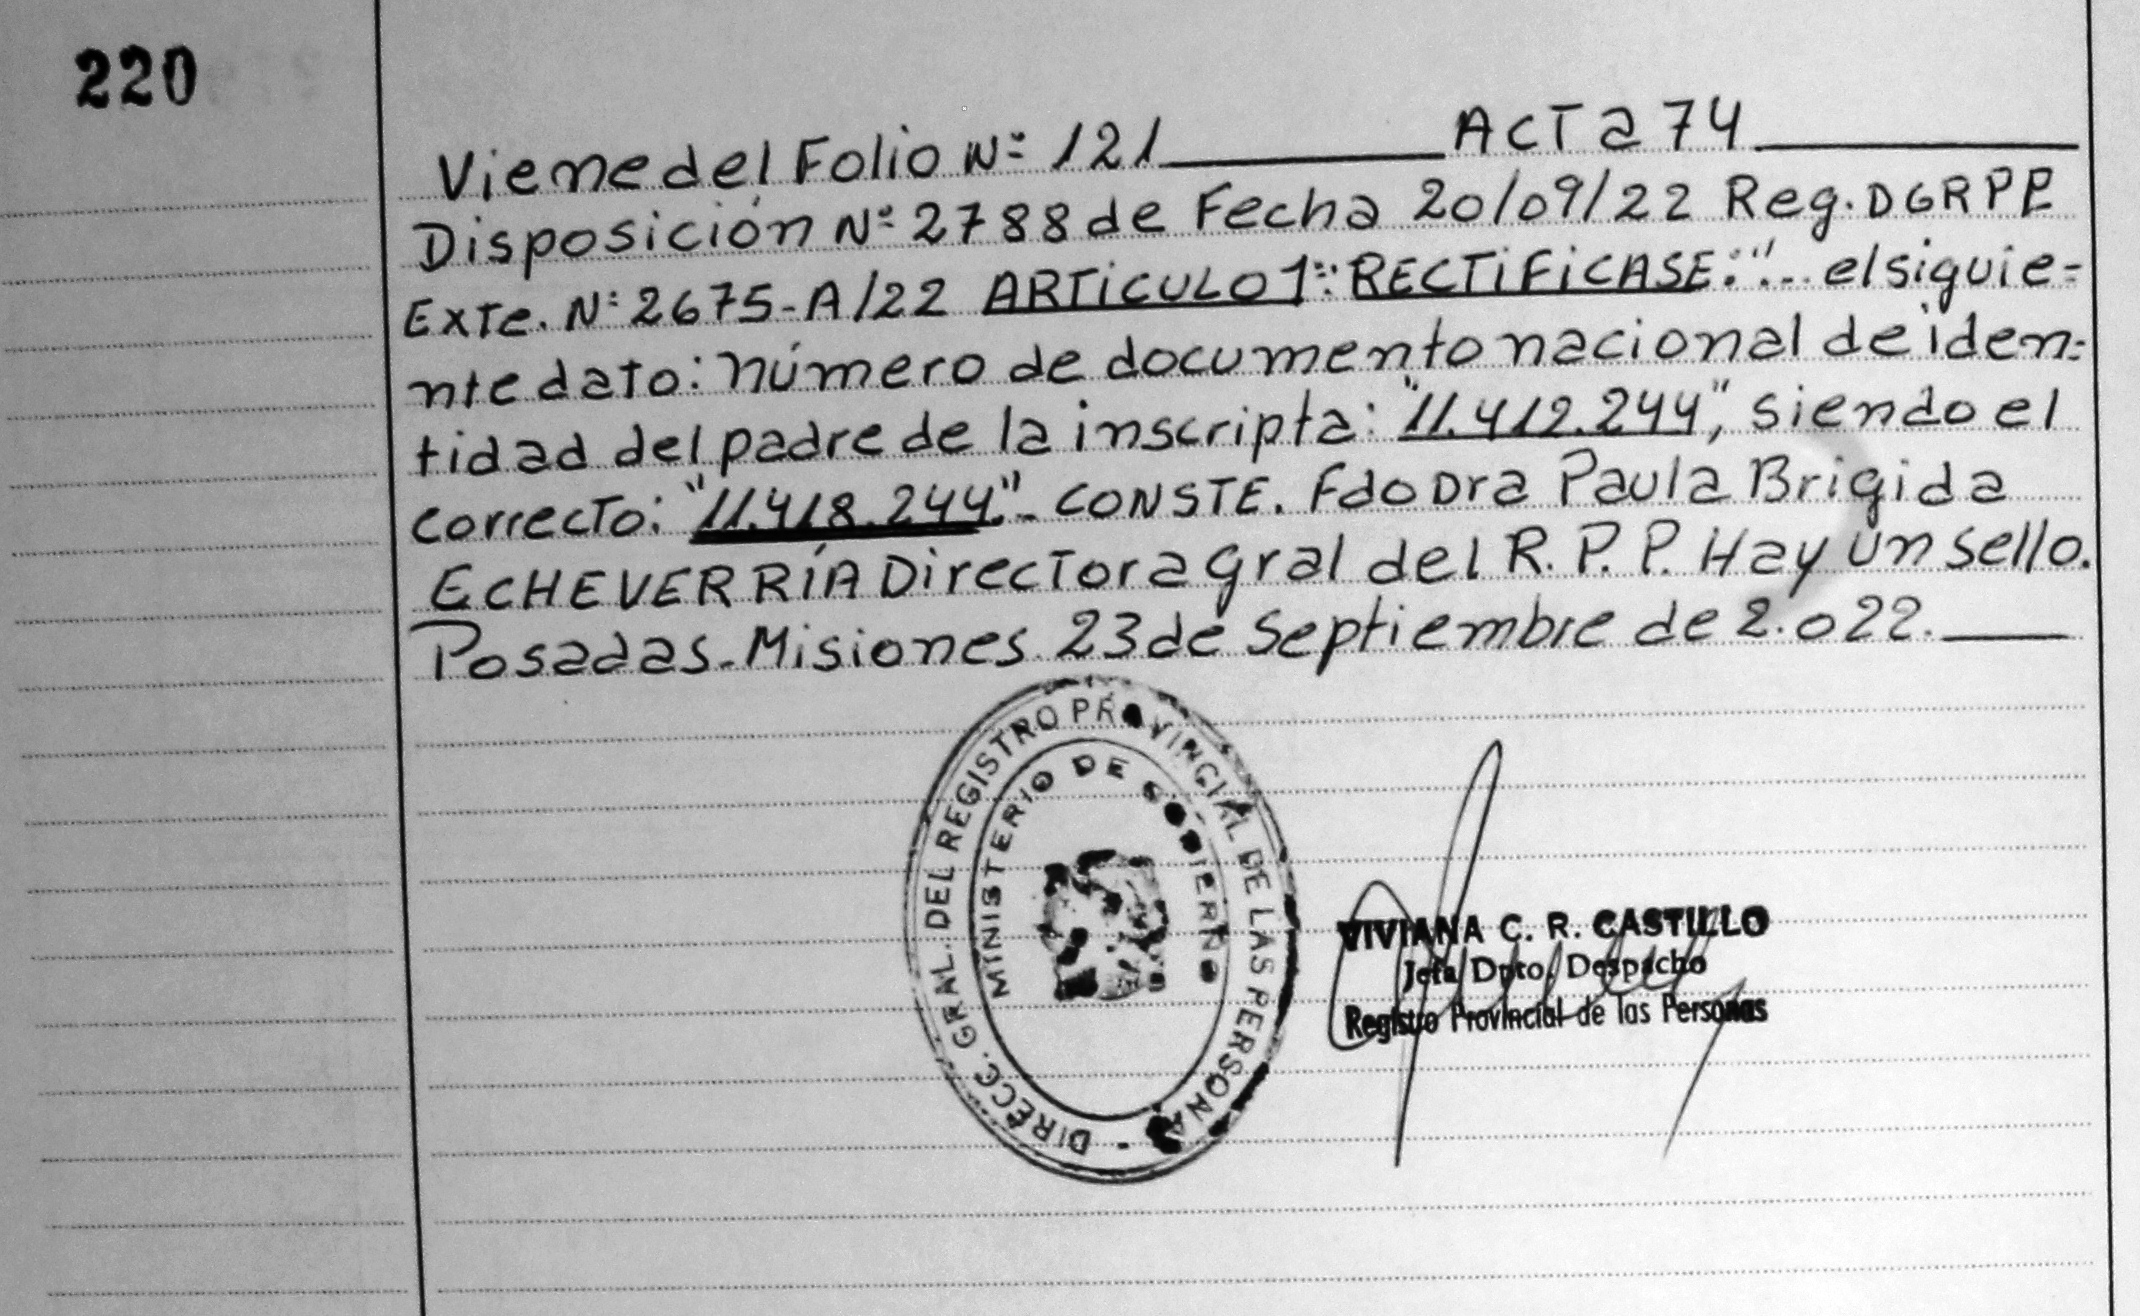 220
Viene del Folio Nº 121 ACTa 74
Disposición Nº 2788 de Fecha 20/09/22 Reg. DGRPP
Exte. Nº 2675-A/22 ARTiCULO 1º: RECTiFiCASE: "... el siguie=
nte dato: número de documento nacional de iden=
tidad del padre de la inscripta: "11.412.244", siendo el
correcto: "11.418.244".- CONSTE. Fdo Dra Paula Brigida
ECHEVERRÍA Directora gral del R. P. P. Hay un sello.
Posadas. Misiones 23 de Septiembre de 2.022.
DIRECC. GRAL. DEL REGISTRO PROVINCIAL DE LAS PERSONAS
MINISTERIO DE GOBIERNO
VIVIANA C. R. CASTILLO
Jefa Dpto. Despacho
Registro Provincial de las Personas